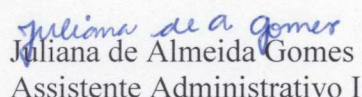 Juliana de A Gomes
Juliana de Almeida Gomes
Assistente Administrativo I